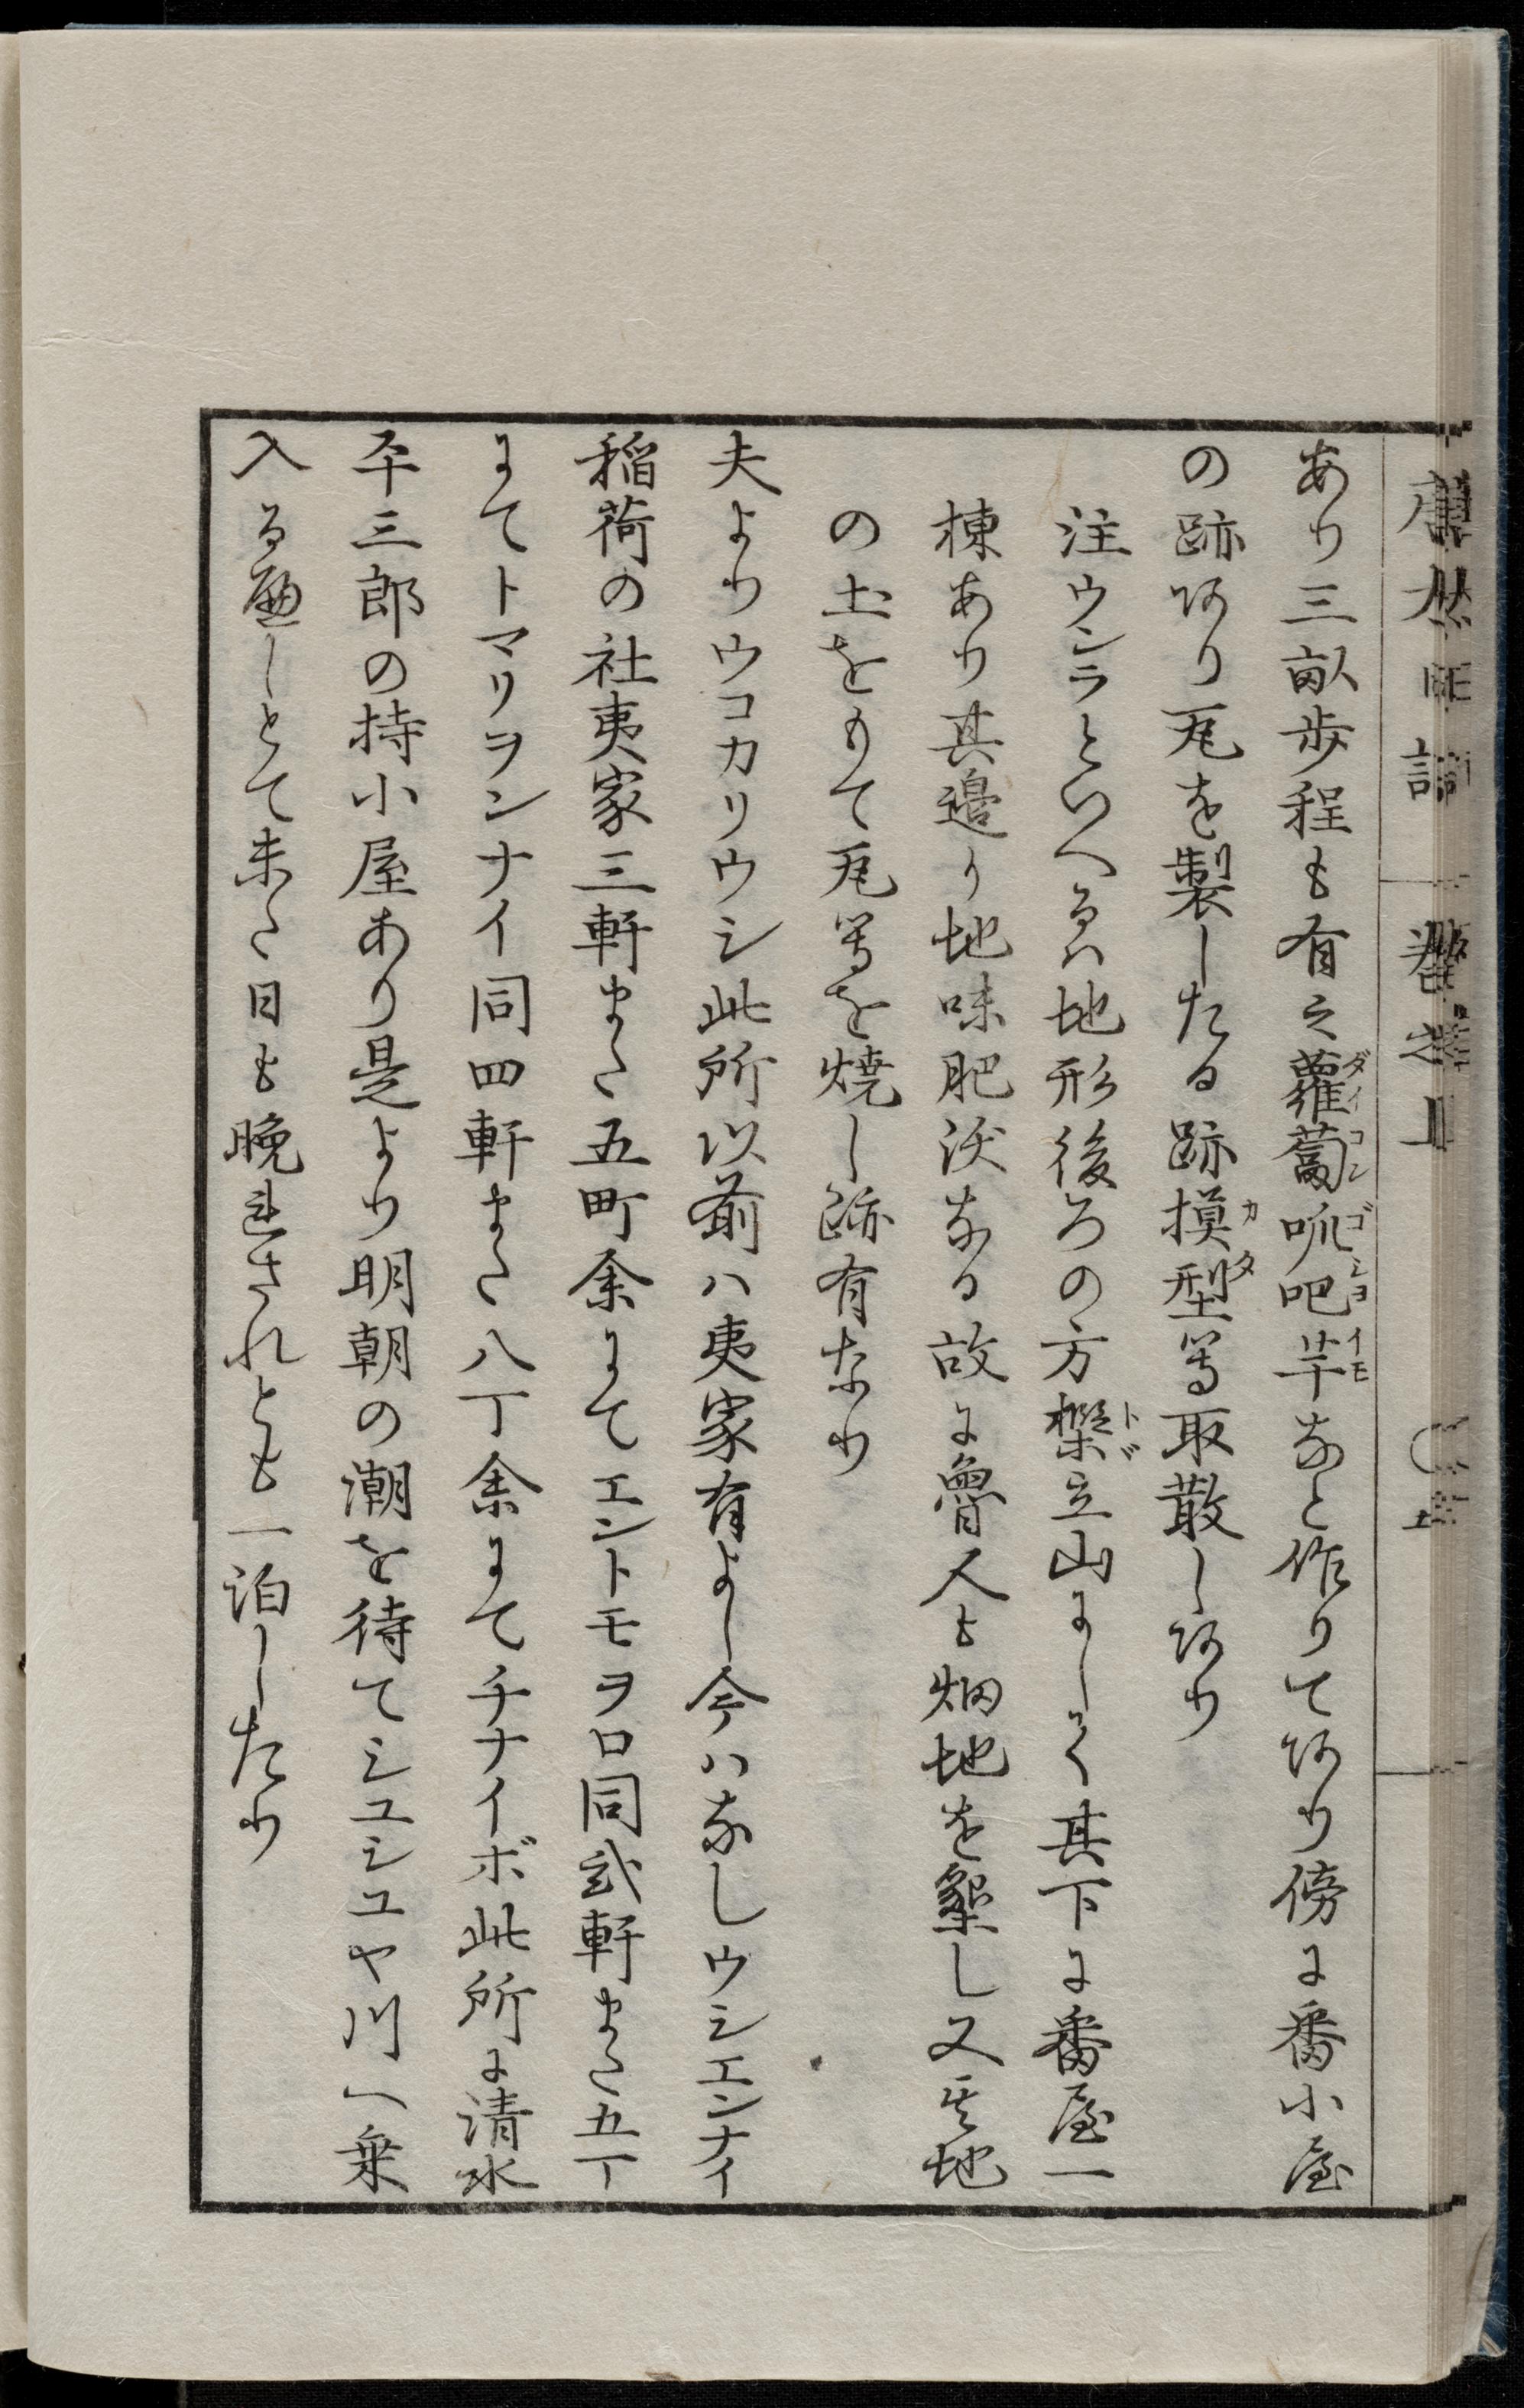 あり三畝歩程も有之蘿蔔呱吧芋なと作りてあり傍に番小屋
の跡あり瓦を製したる跡摸型等取散しあり
注ウンラといへるハ地形後ろの方樫立山にして其下に番屋一
棟あり其邉り地味肥沃なる故に魯人も畑地を墾し又其地
の土をもて瓦等を焼し跡有なり
夫よりウコカリウシ此所以前ハ夷家有よし今ハなしウシエンナイ
稲荷の社夷家三軒また五町余にてエントモヲロ同弐軒また五丁
にてトマリヲンナイ同四軒また八丁余にてチナイボ此所に清水
平三郎の持小屋あり是より明朝の潮を待てシユシユヤ川へ乗
入る趣しとて未た日も晩れされとも一泊したり